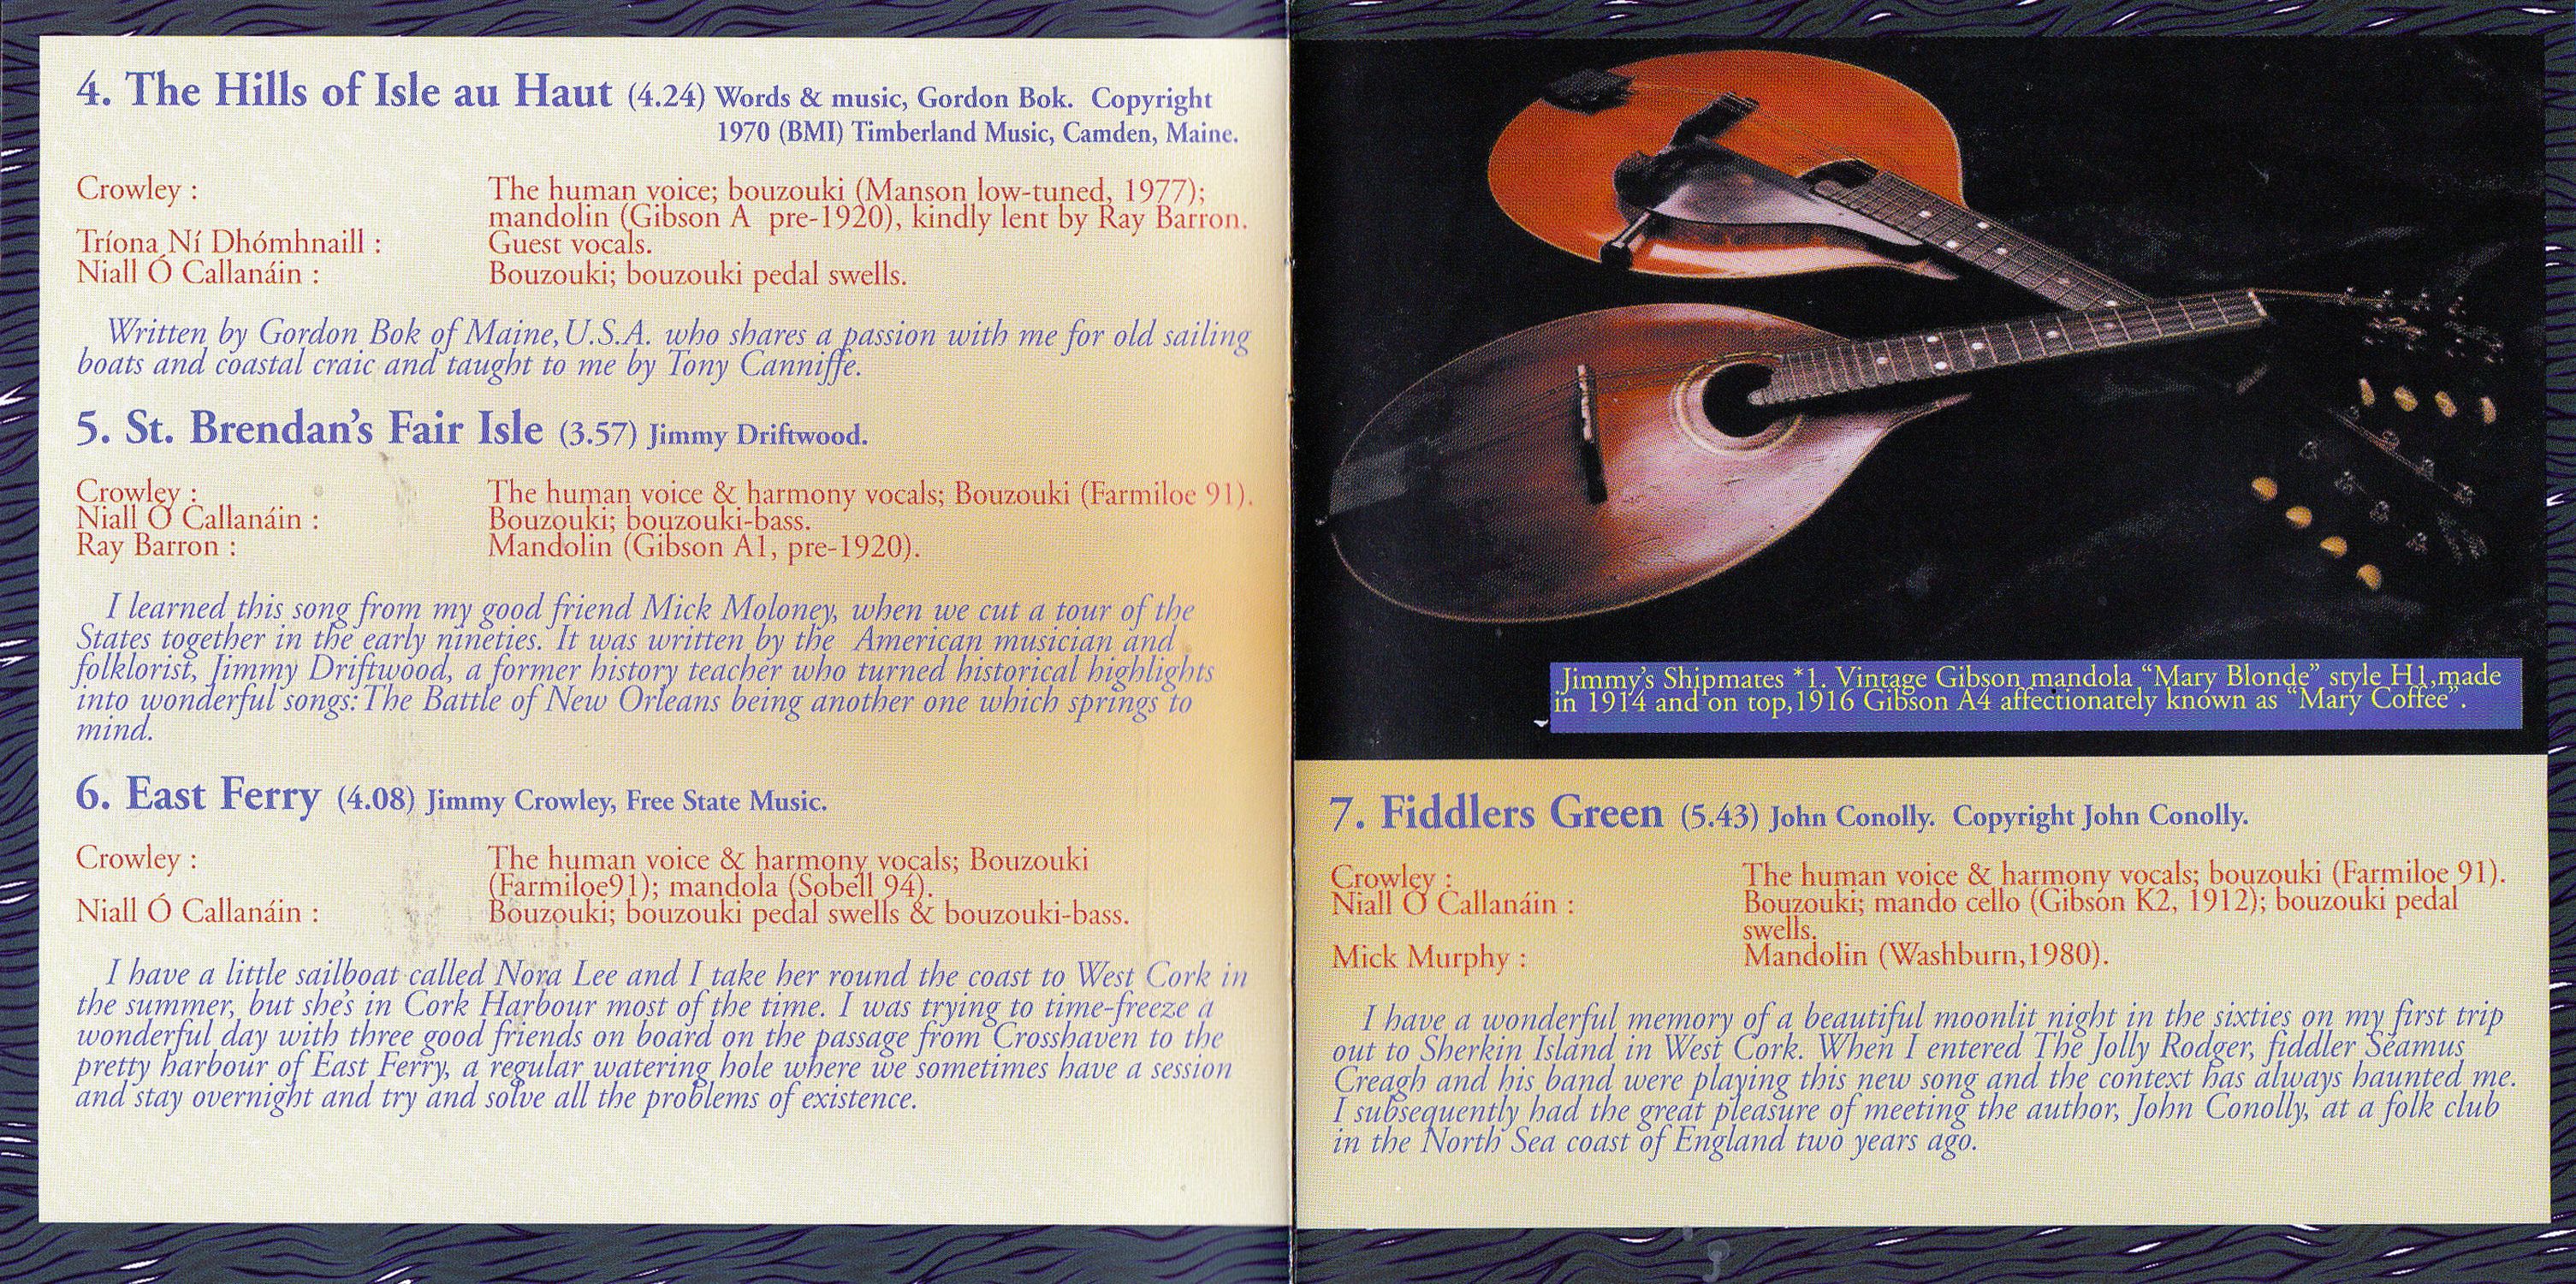 4. The Hills of Isle au Haut (4.24) Words & music, Gordon Bok. Copyright
1970 (BMI) Timberland Music, Camden, Maine.
Crowley : The human voice; bouzouki (Manson low-tuned, 1977);
mandolin (Gibson A pre-1920), kindly lent by Ray Barron.
Tríona Ní Dhómhnaill : Guest vocals.
Niall Ó Callanáin : Bouzouki; bouzouki pedal swells.
Written by Gordon Bok of Maine,U.S.A. who shares a passion with me for old sailing
boats and coastal craic and taught to me by Tony Canniffe.
5. St. Brendan's Fair Isle (3.57) Jimmy Driftwood.
Crowley : The human voice & harmony vocals; Bouzouki (Farmiloe 91).
Niall Ó Callanáin : Bouzouki; bouzouki-bass.
Ray Barron : Mandolin (Gibson A1, pre-1920).
I learned this song from my good friend Mick Moloney, when we cut a tour of the
States together in the early nineties. It was written by the American musician and
folklorist, Jimmy Driftwood, a former history teacher who turned historical highlights
into wonderful songs:The Battle of New Orleans being another one which springs to
mind.
6. East Ferry (4.08) Jimmy Crowley, Free State Music.
Crowley : The human voice & harmony vocals; Bouzouki
(Farmiloe91); mandola (Sobell 94).
Niall Ó Callanáin : Bouzouki; bouzouki pedal swells & bouzouki-bass.
I have a little sailboat called Nora Lee and I take her round the coast to West Cork in
the summer, but she's in Cork Harbour most of the time. I was trying to time-freeze a
wonderful day with three good friends on board on the passage from Crosshaven to the
pretty harbour of East Ferry, a regular watering hole where we sometimes have a session
and stay overnight and try and solve all the problems of existence.
Jimmy's Shipmates *1. Vintage Gibson mandola "Mary Blonde" style H1,made
in 1914 and on top,1916 Gibson A4 affectionately known as "Mary Coffee".
7. Fiddlers Green (5.43) John Conolly. Copyright John Conolly.
Crowley : The human voice & harmony vocals; bouzouki (Farmiloe 91).
Niall Ó Callanáin : Bouzouki; mando cello (Gibson K2, 1912); bouzouki pedal
swells.
Mick Murphy : Mandolin (Washburn,1980).
I have a wonderful memory of a beautiful moonlit night in the sixties on my first trip
out to Sherkin Island in West Cork. When I entered The Jolly Rodger, fiddler Séamus
Creagh and his band were playing this new song and the context has always haunted me.
I subsequently had the great pleasure of meeting the author, John Conolly, at a folk club
in the North Sea coast of England two years ago.